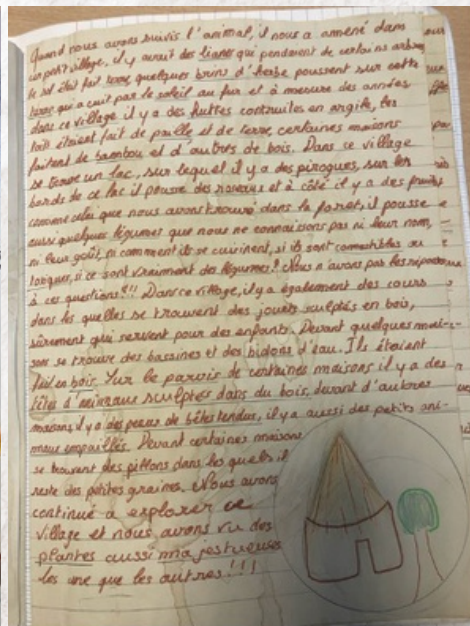 Quand nous avons suivis l'animal, il nous a amené dans
un petit village, il y avait des lianes qui pendaient de certains arbres
le sol était fait terre, quelques brins d'herbe poussent sur cette
terre qui a cuit par le soleil au fur et à mesure des années
dans ce village il y a des huttes contruites en argile, les
toit étaient fait de paille et de terre, certaines maisons
faitent de bambou et d'autres de bois. Dans ce village
se trouve un lac, sur lequel il y a des pirogues, sur les
bords de ce lac il pousse des roseaux et à côté il y a des fruits
comme celui que nous avons trouvé dans la foret, il pousse
aussi quelques légumes que nous ne connaissons pas ni leur nom,
ni leur goût, ni comment ils se cuisinent, si ils sont comestibles ou
toxiques, si ce sont vraiment des légumes? Nous n'avons pas les réponses
à ces questions!!! Dans ce village, il y a également des cours
dans les quelles se trouvent des jouets sculptés en bois,
sûrement qui servent pour des enfants. Devant quelques mai-
sons se trouve des bassines et des bidons d'eau. Ils étaient
fait en bois. Sur le parvis de certaines maisons il y a des
têtes d'animaux sculptés dans du bois, devant d'autres
maisons, il y a des peaux de bêtes tendus, il y a aussi des petits ani-
maux empaillés. Devant certaines maisons
se trouvent des pillons dans les quels il
reste des petites graines. Nous avons
continué a explorer ce
village et nous avons vu des
plantes aussi majestueuses
les une que les autres!!!